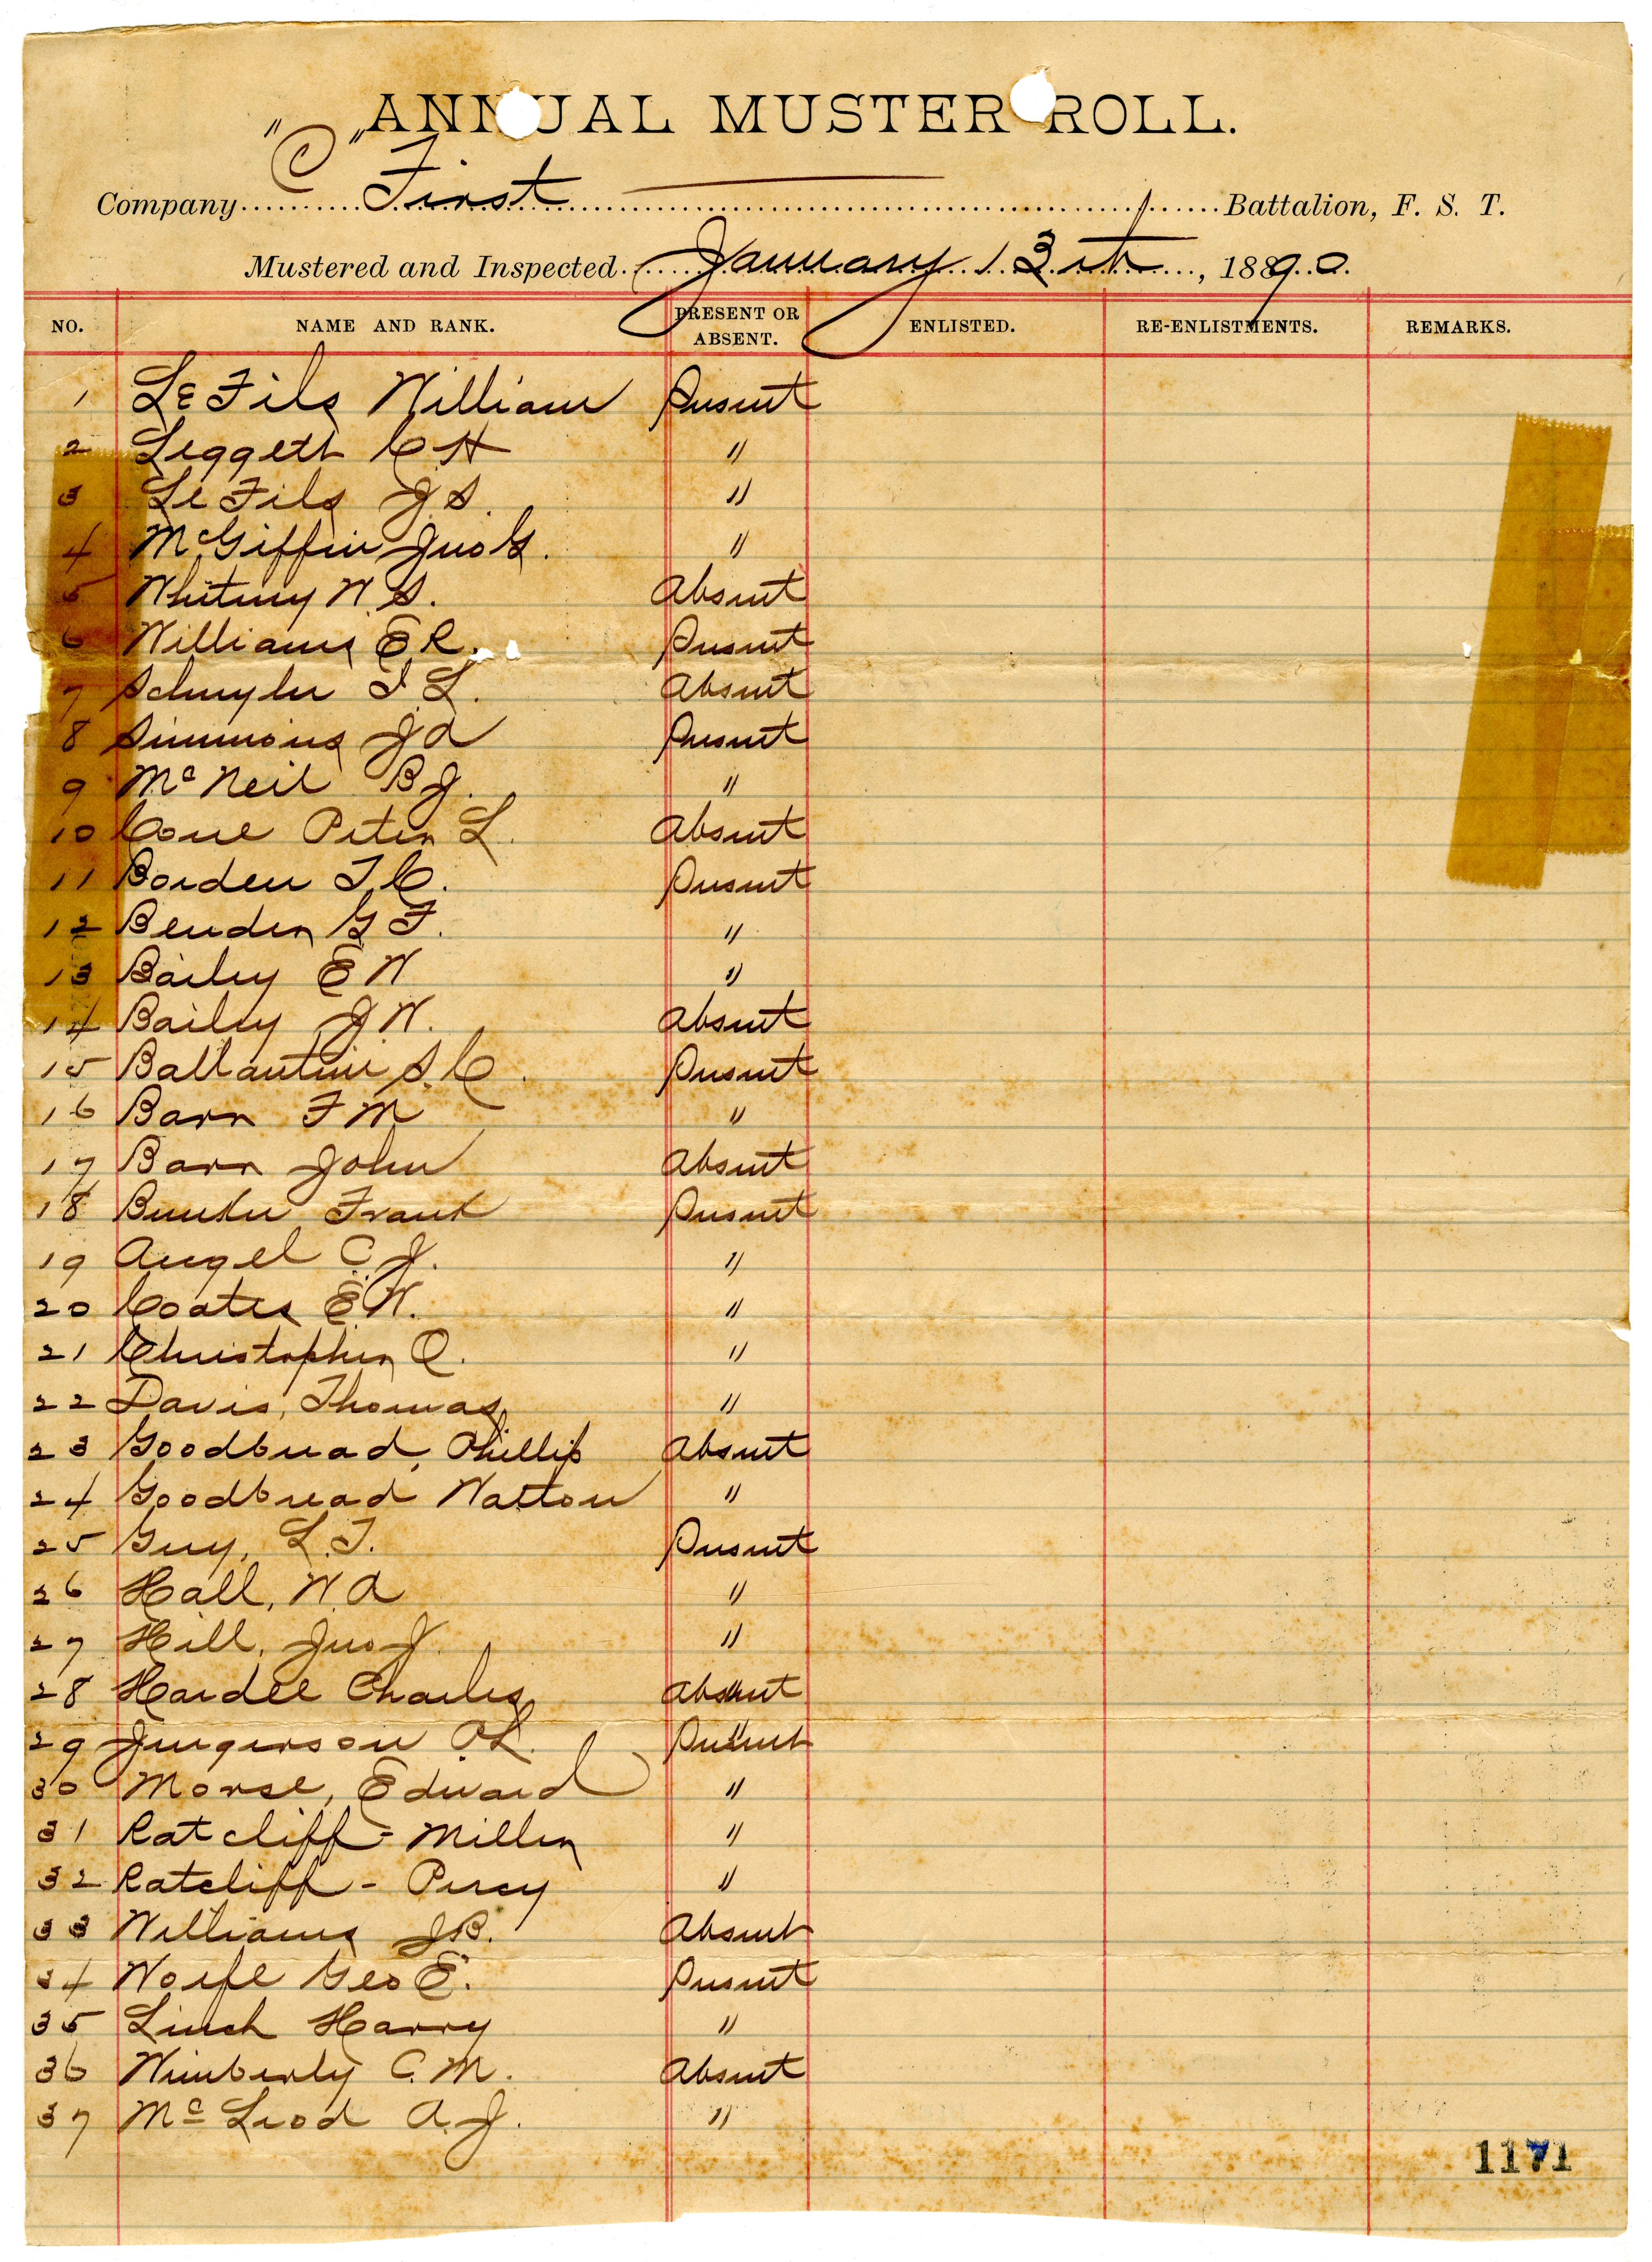 ANNUAL MUSTER ROLL.
Company "C" First Battalion, F. S. T.
Mustered and Inspected January 13th, 1890.
NO. NAME AND RANK. PRESENT OR ABSENT. ENLISTED. RE-ENLISTMENTS. REMARKS.
1 LeFils William Present
2 Leggett C H "
3 Le Fils J S. "
4 McGiffin Jno G. "
5 Whitney W. S. Absent
6 Williams E R. Present
7 Schuyler L. Absent
8 Simmons J A Present
9 McNeil B J. "
10 Cone Peter L. Absent
11 Borden T. C. Present
12 Bender G F. "
13 Bailey E W "
14 Bailey J. W. Absent
15 Ballantine S. C. Present
16 Barr F M "
17 Barr John Absent
18 Frank Present
19 Angel C. J. "
20 Coates E. W. "
21 Christopher Q. "
22 Davis, Thomas "
23 Goodbread, Phillip Absent
24 Goodbread Watton "
25 Guy, L. T. Present
26 Hall, W. A "
27 Hill, Jno J. "
28 Hardee Charles Absent
29 Jingerson L. Present
30 Morse, Edward "
31 Ratcliff - Miller "
32 Ratcliff - Percy "
33 Williams J B. Absent
34 Wolfe Geo E. Present
35 Linch Harry "
36 Wimberly C. M. Absent
37 McLeod A. J. "
1171